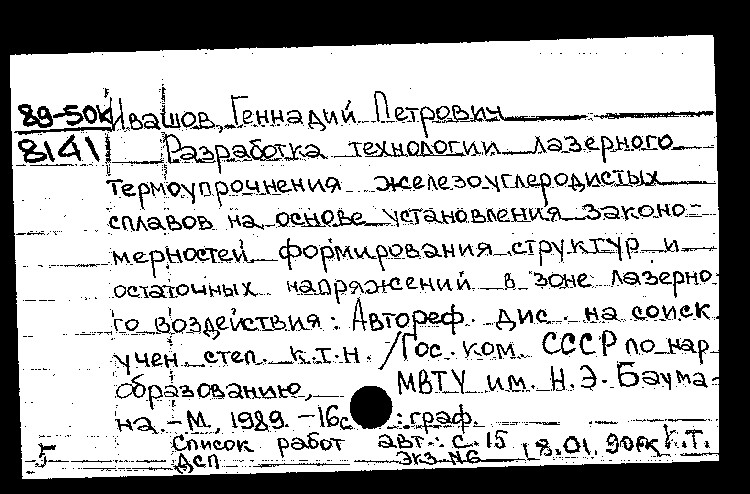 89-50К Ивашов, Геннадий Петрович
8141 Разработка технологии лазерного
термоупрочнения железоуглеродистых
сплавов на основе установления законо-
мерностей формирования структур и
остаточных напряжений в зоне лазерно-
го воздействия: Автореф. дис. на соиск.
учен. степ. к.т.н. /Гос. ком. СССР по нар.
образованию, МВТУ им. Н.Э. Баума-
на. - М., 1989. - 16с : граф.
Список работ авт.: с. 15 18.01.90 К.Т.
5 Дсп Экз. №6